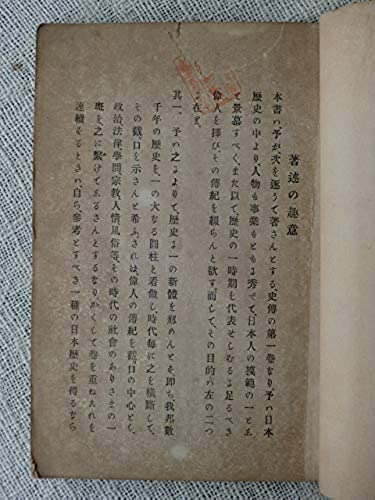 著述の趣意
本書ハ、予が次を逐うて著さんとする史傳の第一卷なり、予ハ日本
歴史の中より、人物も事業もともに秀でゝ日本人の模範の一とし
て景慕すべく、また以て歴史の一時期を代表せしむるに足るべき
偉人を擇び、その傳紀を綴らんと欲す、而して、その目的ハ左の二つ
に在り、
其一、予ハ之によりて歴史に一の新體を創めんとす、即ち我邦數
千年の歴史を、一の大なる圓柱と看做し、時代毎に之を横斷して、
その截口を示さんと希ふ、されば、偉人の傳紀を截口の中心とし、
政治法律學問宗教人情風俗等、その時代の社會のありさまの一
斑を之に繋けて示さんとするなり、かくして卷を重ね、これを
連續するときハ、自ら、參考とすべき一種の日本歴史を得るなら